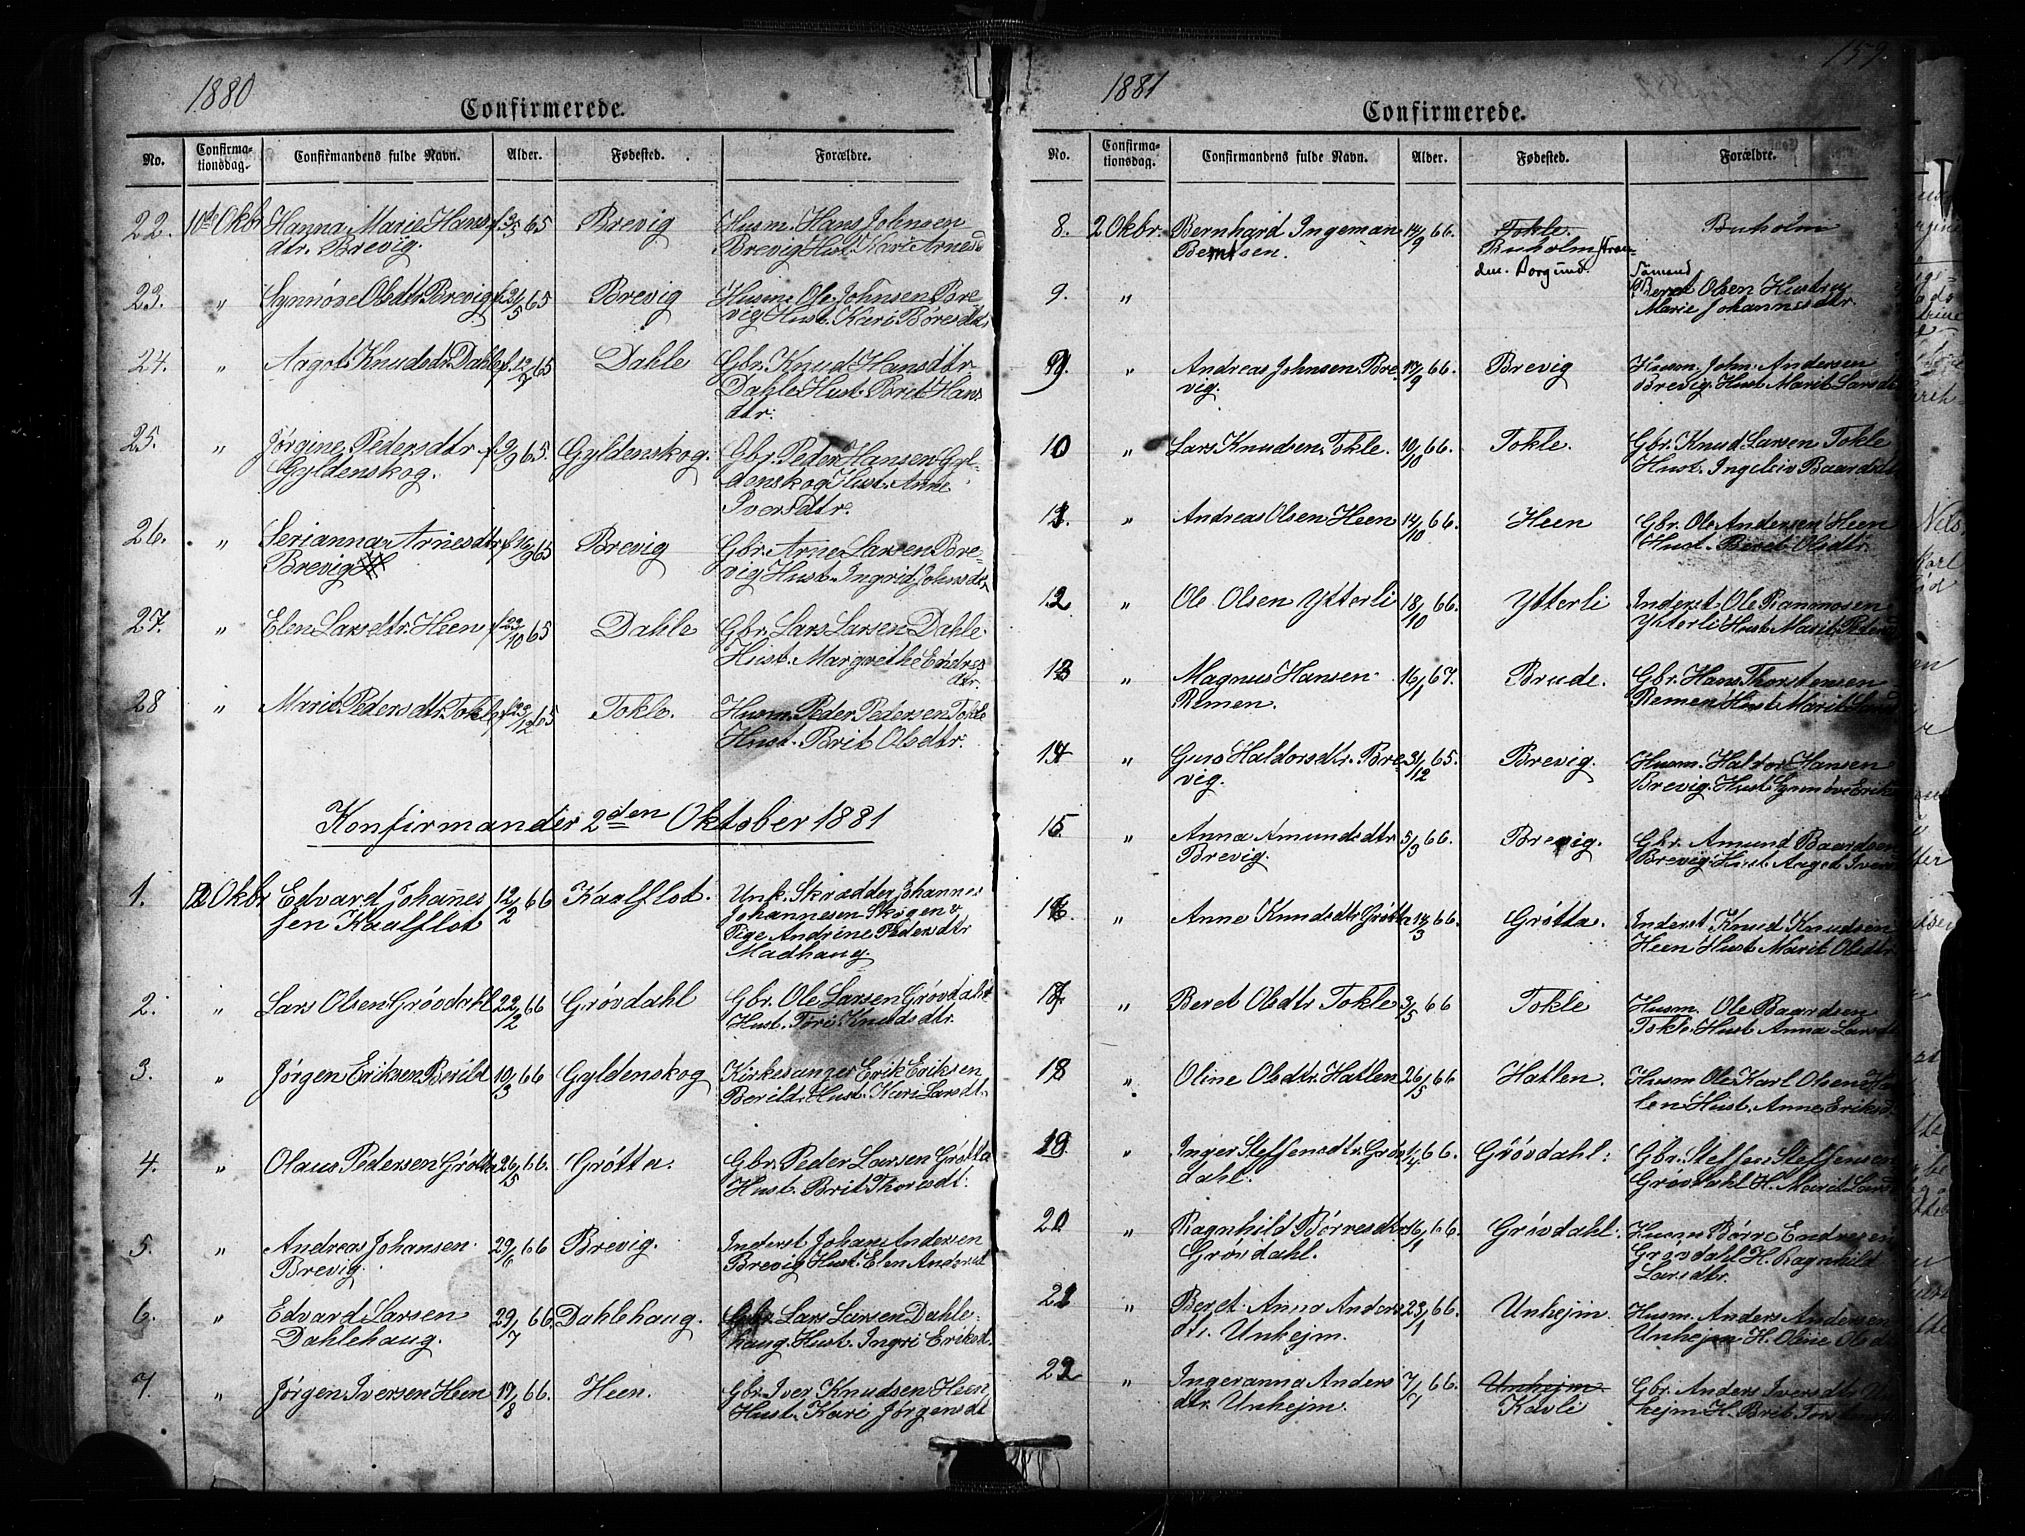 1880
Confirmerede.
No. Confirma-tionsdag. Confirmandens fulde Navn. Alder. Fødested. Forældre.
22. 10de Okbr Hanna Marie Hans f. 3/5 65 Brevig Husm. Hans Johnsen
dtr. Brevig. Brevig Hust. Mari Arnesd
23. " Synnøve Olsdtr Brevig f. 65 Brevig Husm. Ole Johnsen Bre-
vig Hust. Kari Børesdtr
24. " Aagot Knudsdtr. Dahle f. 12/7 65 Dahle Gbr. Knud Hansdtr
Dahle Hust. Brit Hans
dtr.
25. " Jørgine Pedersdtr f. 9/9 65. Gyldenskog. Gbr. Peder Hansen Gyl-
Gyldenskog. denskog Hust. Anne
Iversdtr.
26. " Serianna Arnesdtr f. 65 Brevig Gbr. Arne Larsen Bre-
Brevig vig Hust. Ingrid Johnsdtr
27. " Elen Larsdtr. Heen f. 23/10 65 Dahle Gbr. Lars Larsen Dahle.
Hust. Margrethe Endres
dtr.
28 " Marit Pedersdtr. Tokle f. 23/12 65 Tokle. Husm. Peder Pedersen Tokle
Hust. Brit Olsdtr.
Konfirmander 2den Oktober 1881
1. 2 Okbr Edvard Johannes 12/2 66 Kaalflot. Unk. Skrædder Johannes
sen Kaalflot Johannesen Skogen &
Pige Andrine Pedersdtr
Madhaug.
2. " Lars Olsen Grøvdahl 22/2 66 Grøvdahl Gbr. Ole Larsen Grøvdahl
Hust. Tori Knudsdtr.
3. " Jørgen Eriksen Berild 10/3 66 Gyldenskog Kirkesanger Erik Eriksen
Berild. Hust. Kari Larsdt.
4. " Olaus Pedersen Grøtta 26/5 66. Grøtta. Gbr. Peder Larsen Grøtta
Hust. Brit Thoresdt.
5. " Andreas Johansen 29/6 66 Brevig. Inderst Johan Andersen
Brevig Brevig Hust. Elen Andersdt
6. " Edvard Larsen 29/7 66. Dahlehaug. Gbr. Lars Larsen Dahle-
Dahlehaug. haug. Hust. Ingri Eriksd.
7 " Jørgen Iversen Heen 17/8 66. Heen. Gbr. Iver Knudsen Heen
Hust. Kari Jørgensdt
159.
1881
Confirmerede.
No. Confirma-tionsdag. Confirmandens fulde Navn. Alder. Fødested. Forældre.
8. 2 Okbr. Bernhard Ingeman 14/9 66. Tokle. Buholm
Berntsen. Buholm Stran-
den. Borgund. Sømand
9. " Bernt Olsen Hustru
Marie Johannesdtr.
9. " Andreas Johnsen Bre 17/9 66. Brevig Husm. John Andersen
vig. Brevig. Hust. Marit Larsdt
10 " Lars Knudsen Tokle. 10/10 66. Tokle. Gbr. Knud Larsen Tokle
Hust. Ingeleiv Baardsdt
11. " Andreas Olsen Heen 14/10 66. Heen Gbr. Ole Andersen Heen
Hust. Beret Olsdtr.
12 " Ole Olsen Ytterli 18/10 66. Ytterli Inderst Ole Rasmusen
Ytterli Hust. Marit
13 " Magnus Hansen 16/1 67. Brude. Gbr. Hans Thorstensen
Remen. Remen Hust. Marit
14 " Guro Haldorsdtr. Bre 3/12 65. Brevig. Husm. Haldor Hansen
vig. Brevig. Hust. Synnøve Eriks
15 " Anna Amundsdtr 5/3 66. Brevig. Gbr. Amund Baardsen
Brevig. Brevig. Hust. Aagot Ivers
16. " Anne Knudsdtr Grøtta 14/3 66. Grøtta. Inderst Knud Knudsen
Heen Hust. Marit Olsdtr.
17 " Beret Olsdtr Tokle 3/5 66 Tokle Husm. Ole Baardsen
Tokle. Hust. Anna Larsdt
18 " Oline Olsdtr. Hatlen 26/5 66 Hatlen. Husm Ole Karl Olsen Hat
len Hust. Anne Eriksd
19. " Inger Steffensdtr. Grøv 1/4 66. Grøvdahl. Gbr. Steffen Steffensen
dahl. Grøvdahl H. Marit Larsd
20 " Ragnhild Børresdtr 16/1 66 Grøvdahl. Husm Børre Endresen
Grøvdahl. Grøvdahl H. Ragnhild
Larsdtr.
21 " Beret Anna Anders 23/1 66. Unhejm. Husm. Anders Andersen
dtr. Unhejm. Unhejm H. Oline Olsdt
22 " Ingeranna Anders 7/7 66. Unhejm Gbr. Anders Iversdtr Un
dtr. Unhejm. Kavli hejm H. Brit